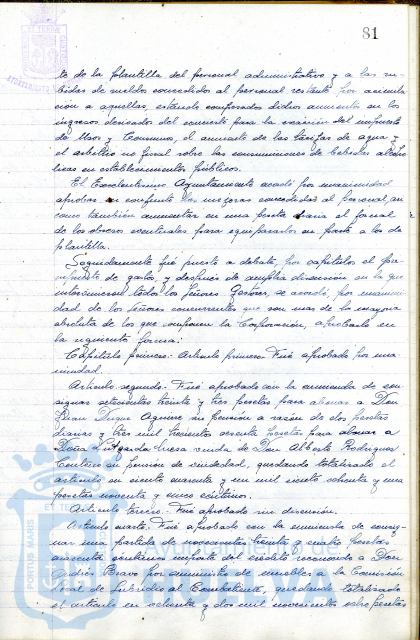 81
to de la plantilla del personal administrativo y a las su-
bidas de sueldo concedido al personal restante por asimila-
ción a aquellas, estando compensados dichos aumentos con los
ingresos derivados del concierto para la exacción del impuesto
de Usos y Consumos, el aumento de las tarifas de agua y
el arbitrio no fiscal sobre las consumiciones de bebidas alcohó-
licas en establecimientos públicos.
El Excelentísimo Ayuntamiento acordó por unanimidad
aprobar en conjunto las mejoras concedidas al personal, así
como también aumentar en una peseta diaria el jornal
de los obreros eventuales para equipararlos en parte a los de
plantilla.
Seguidamente fué puesto a debate, por capítulos el pre-
supuesto de gastos y después de amplia discusión en la que
intervinieron todos los Señores Gestores, se acordó, por unanimi-
dad de los Señores concurrentes que son mas de la mayoría
absoluta de los que componen la Corporación, aprobarlo en
la siguiente forma:
Capítulo primero: Artículo primero. Fué aprobado por una-
nimidad.
Artículo segundo. Fué aprobado con la enmienda de con-
signar setecientas treinta y tres pesetas para abonar a Don
Juan Duque Aguirre su pensión a razón de dos pesetas
diarias y tres mil trescientas sesenta pesetas para abonar a
Doña Lutgarda viuda de Don Alberto Rodríguez
su pensión de viudedad, quedando totalizado el
artículo en ciento cuarenta y un mil ciento ochenta y una
pesetas noventa y cinco céntimos.
Artículo tercero. Fué aprobado sin discusión.
Artículo cuarto. Fué aprobado con la enmienda de consig-
nar una partida de novecientas treinta y cuatro pesetas
cuarenta céntimos importe del crédito reconocido a Don
Andrés Bravo por suministro de muebles a la Comisión
Local de Subsidio al Combatiente, quedando totalizado
el artículo en ochenta y dos mil novecientas ocho pesetas